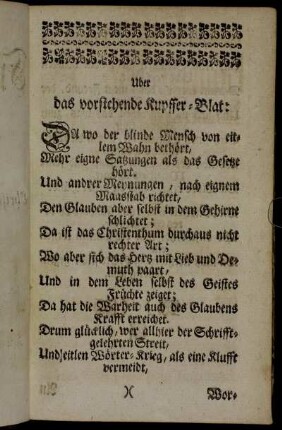 Uber
das vorstehende Kupffer-Blat:
DA wo der blinde Mensch von eit-
lem Wahn bethört,
Mehr eigne Satzungen als das Gesetze
hört,
Und andrer Meynungen, nach eignem
Maasstab richtet,
Den Glauben aber selbst in dem Gehirne
schlichtet;
Da ist das Christenthum durchaus nicht
rechter Art;
Wo aber sich das Hertz mit Lieb und De-
muth paart,
Und in dem Leben selbst des Geistes
Früchte zeiget;
Da hat die Warheit auch des Glaubens
Krafft erreichet.
Drum glücklich, wer allhier der Schrifft-
gelehrten Streit,
Und eitlen Wörter-Krieg, als eine Klufft
vermeidt,
)(
Wor-